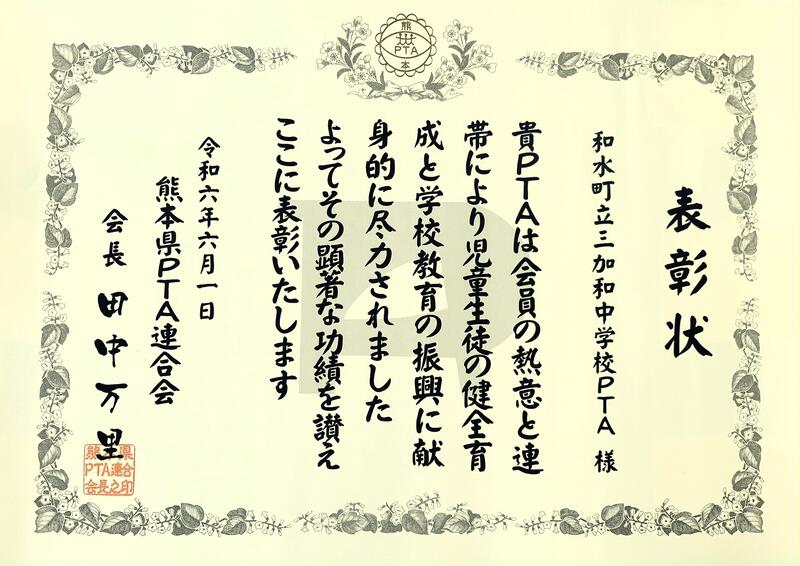 熊
PTA
本
表彰状
和水町立三加和中学校PTA 様
貴PTAは会員の熱意と連
帯により児童生徒の健全育
成と学校教育の振興に献
身的に尽力されました
よってその顕著な功績を讃え
ここに表彰いたします
令和六年六月一日
熊本県PTA連合会
会長 田中万里
熊本県
PTA連合
会長之印